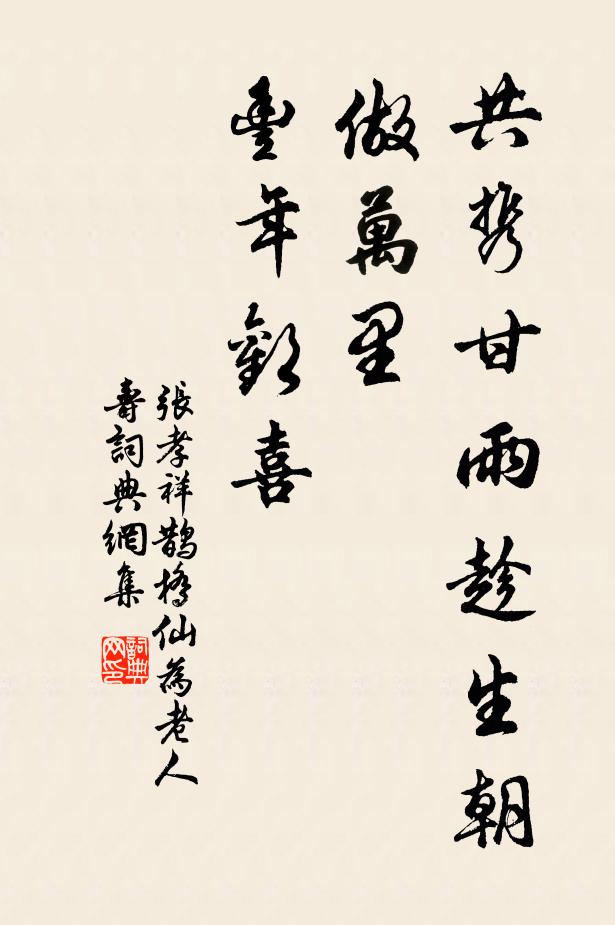 共携甘雨趁生朝
做萬里
豐年歡喜
張孝祥鵲橋仙為老人
壽詞典網集
詞典网印